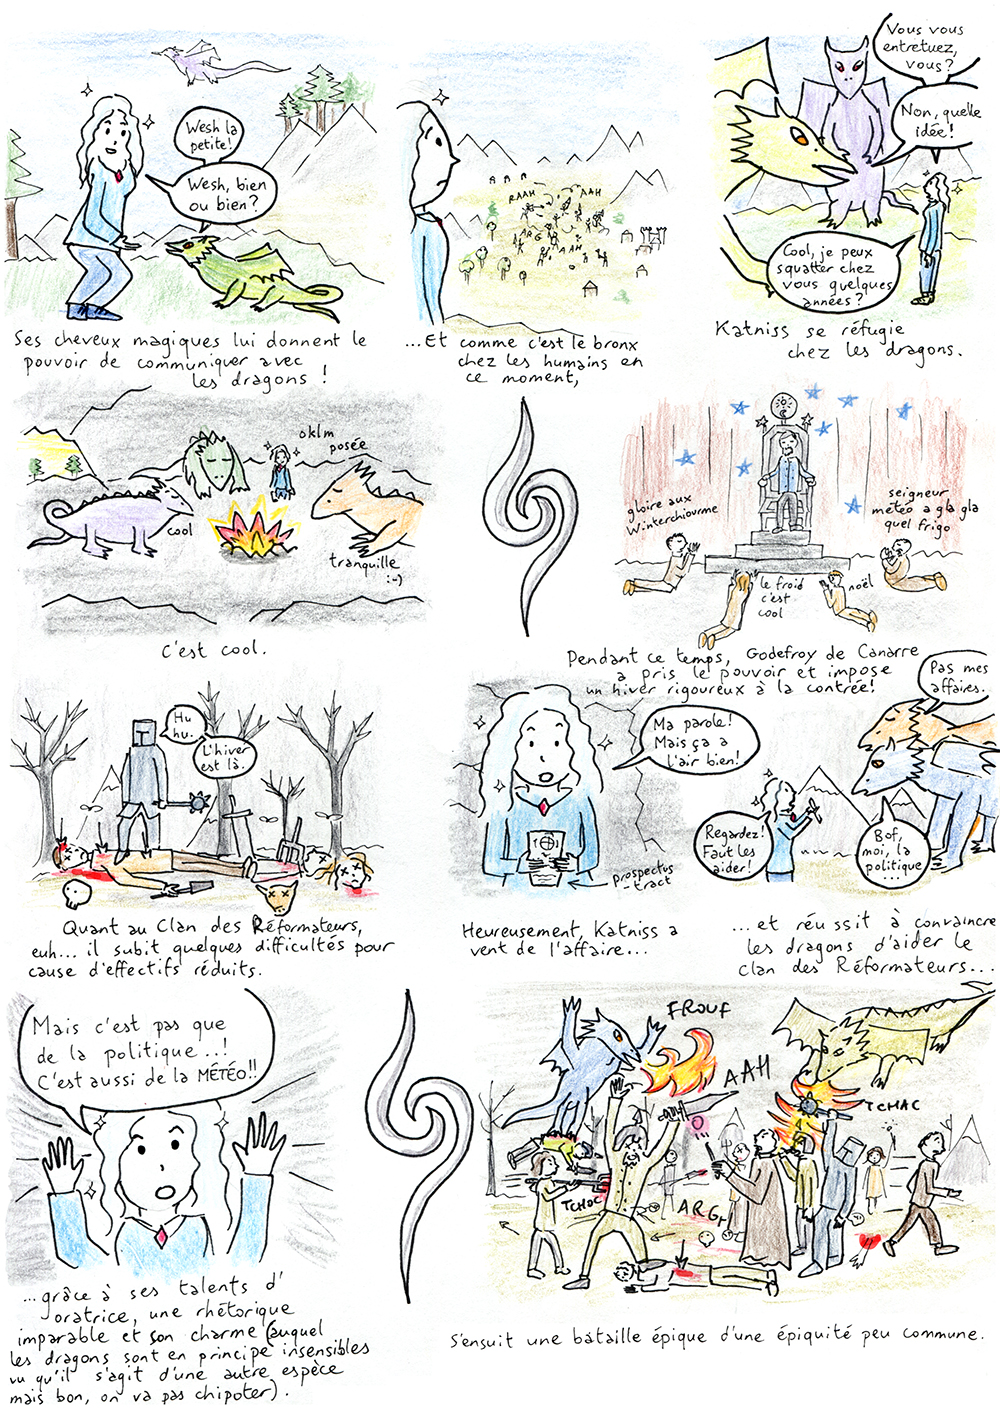 Wesh la
petite!
Wesh, bien
ou bien?
Ses cheveux magiques lui donnent le
pouvoir de communiquer avec
les dragons !
RAAH
AAH
ARG
AAH
...Et comme c'est le bronx
chez les humains en
ce moment,
Vous vous
entretuez,
vous?
Non, quelle
idée!
Cool, je peux
squatter chez
vous quelques
années?
Katniss se réfugie
chez les dragons.
oklm
posée
cool
tranquille
:-)
C'est cool.
gloire aux
Winterchiourme
seigneur
météo a gla gla
quel frigo
le froid
c'est
cool
noël
Pendant ce temps, Godefroy de Canarre
a pris le pouvoir et impose
un hiver rigoureux à la contrée!
Hu
hu.
L'hiver
est là.
Quant au Clan des Réformateurs,
euh... il subit quelques difficultés pour
cause d'effectifs réduits.
Ma parole!
Mais ça a
l'air bien!
prospectus
-tract
Heureusement, Katniss a
vent de l'affaire...
Pas mes
affaires.
Regardez!
Faut les
aider!
Bof,
moi, la
politique
...
...et réussit à convaincre
les dragons d'aider le
clan des Réformateurs...
Mais c'est pas que
de la politique...!
C'est aussi de la MÉTÉO!!
...grâce à ses talents d'
oratrice, une rhétorique
imparable et son charme (auquel
les dragons sont en principe insensibles
vu qu'il s'agit d'une autre espèce
mais bon, on va pas chipoter).
FROUF
AAH
TCHAC
TCHOC
ARGr
S'ensuit une bataille épique d'une épiquité peu commune.